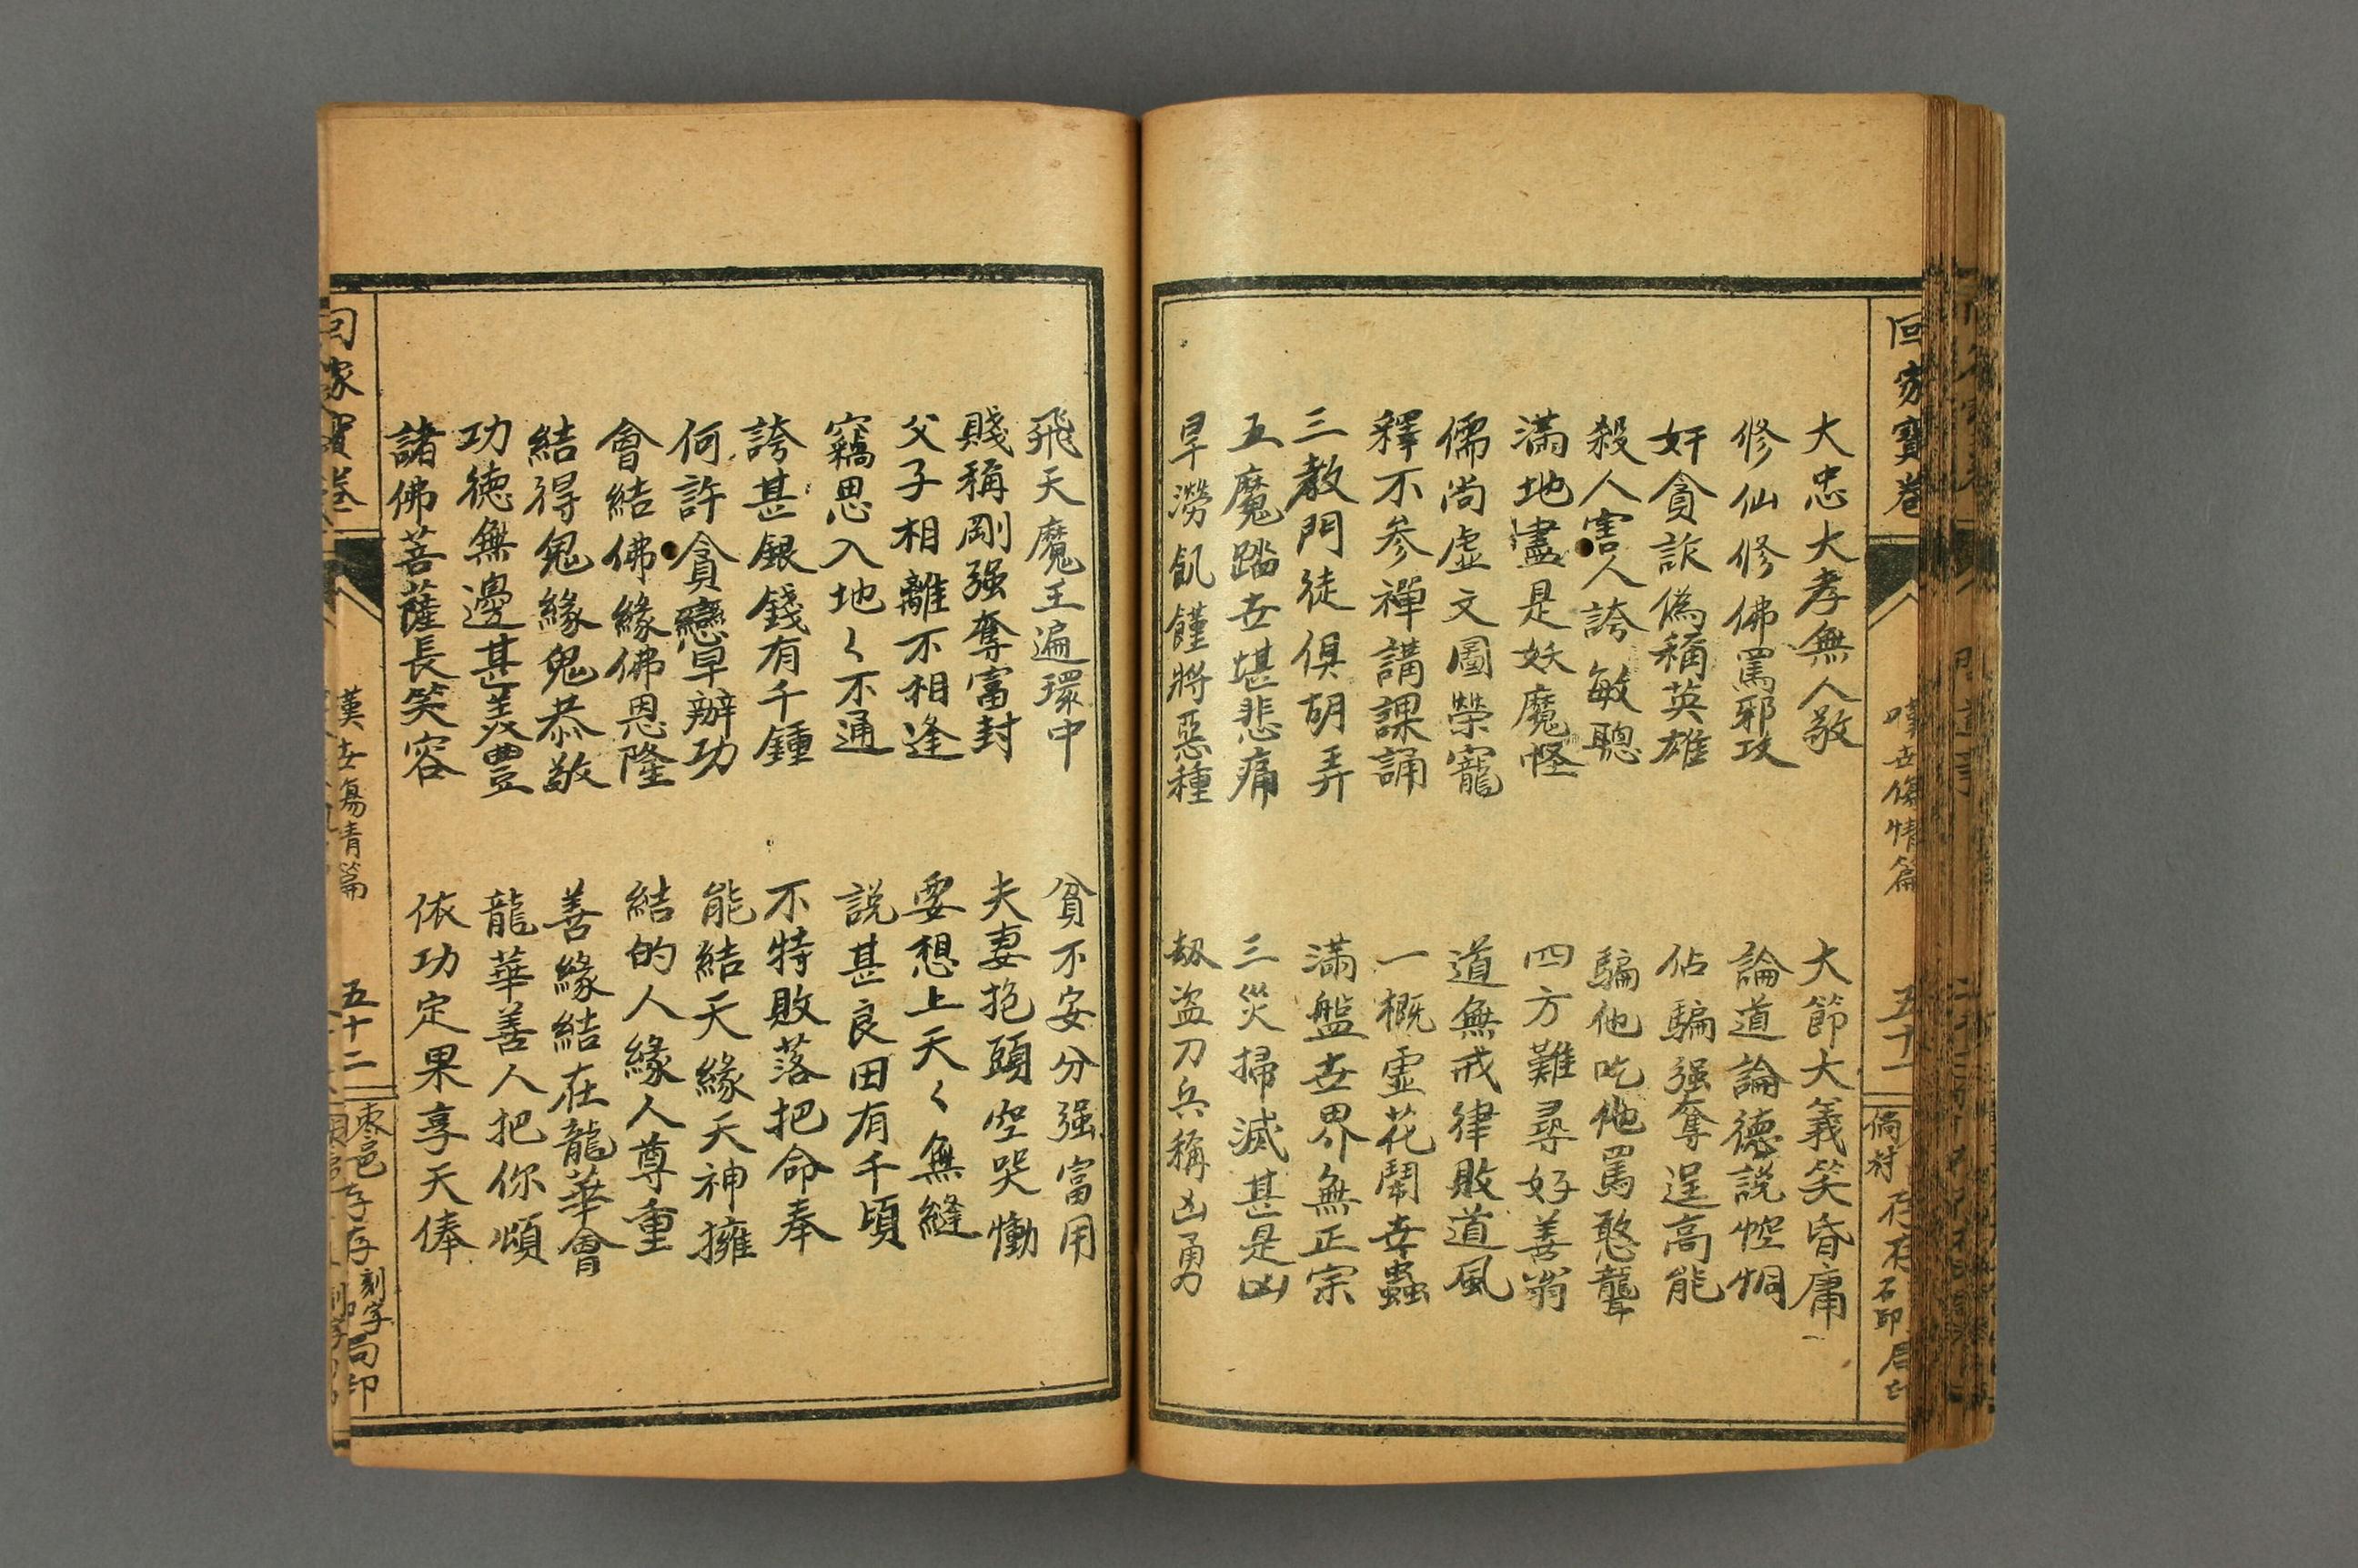 回家寶卷
嘆世傷情篇
五十一
石印局
大忠大孝無人敬 大節大義笑昏庸
修仙修佛罵邪攻 論道論德説悾恫
奸貪詐偽稱英雄 佔騙强奪逞高能
殺人害人誇敏聰 騙他吃他罵憨聾
滿地盡是妖魔怪 四方難尋好善翁
儒尚虚文圖榮寵 道無戒律敗道風
釋不参禪講課誦 一概霊花鬧㐂蟲
三教門徒俱胡弄 滿盤世界無正宗
五魔踏世堪悲痛 三災掃滅甚是凶
旱澇飢饉將惡種 刼盗刀兵稱凶勇
飛天魔王遍環中 貧不安分强富用
賤稱剛强奪富封 夫妻抱頭空哭慟
父子相離不相逢 要想上天々無縫
竊思入地々不通 説甚良田有千頃
誇甚銀錢有千鍾 不特敗落把命奉
何許貪戀早辦功 能結天緣天神擁
會結佛緣佛恩隆 結的人緣人尊重
結得鬼緣鬼恭敬 善緣結在龍華會
功德無邊甚羡豊 龍華善人把你頌
諸佛菩薩長笑容 依功定果享天俸
回家寶卷
嘆世傷情篇
五十二
棗邑
存刻字局印